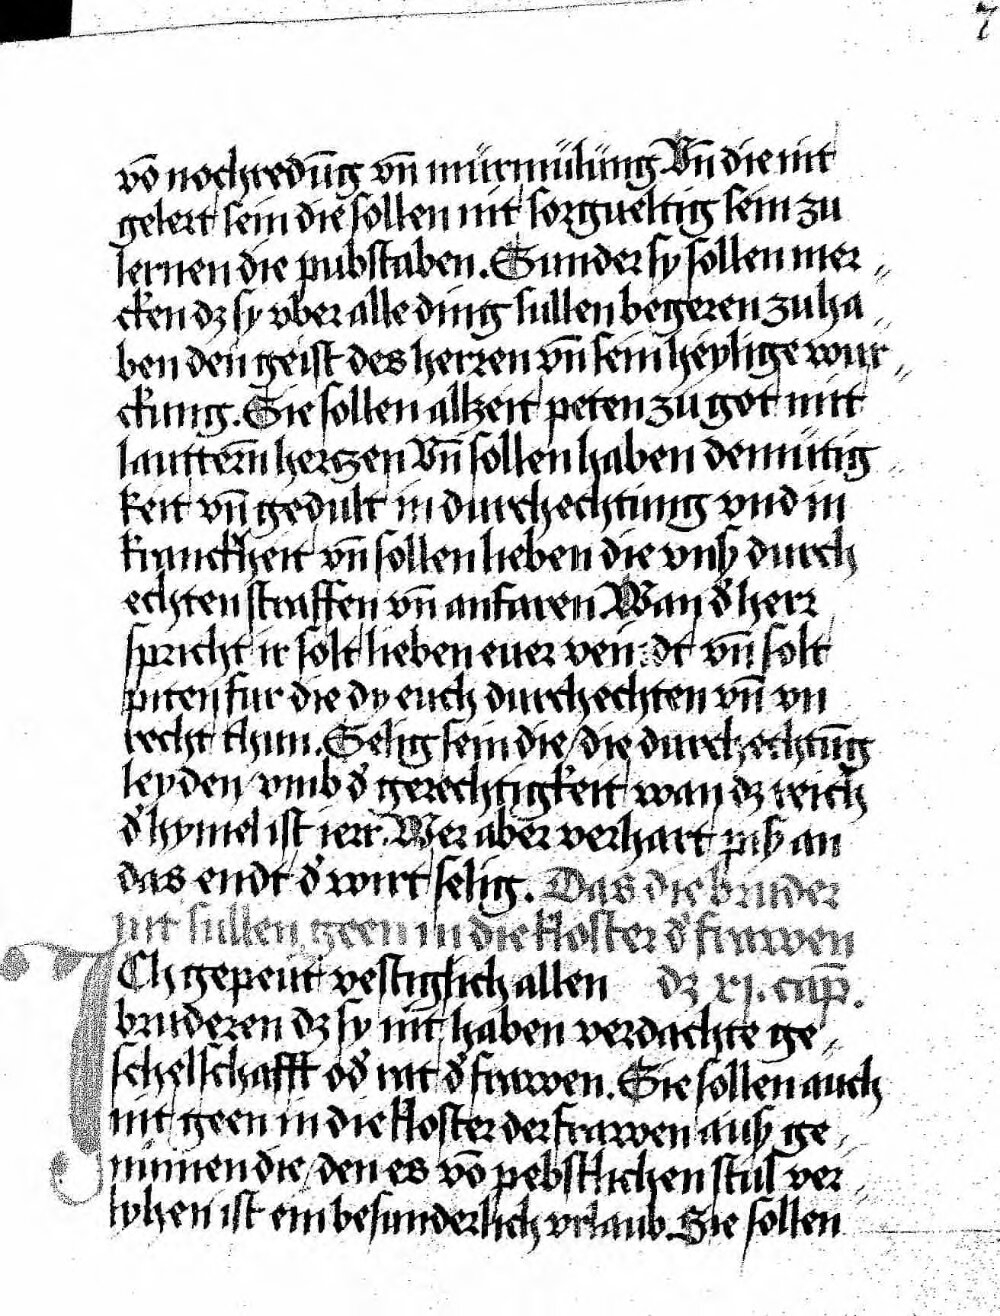 7
vō nochredūg vn̄ mürmülüng Vn̄ die nit
gelert sein die sollen nit sorgueltig sein zu
lernen die pubstaben. Sunder sy sollen mer„
cken dz sy vber alle ding sullen begeren zu ha„
ben den geist des herren vn̄ sein heylige wur„
ckung. Sie sollen allzeit peten zu got mit
lautterm̄ hertzen Vn̄ sollen haben demütig„
keit vn̄ gedult in durchechtung vnd in
kranckheit vn̄ sollen lieben die vnß durch
echten straffen vn̄ anfaren. Wan d̓ herr
spricht ir solt lieben euer veindt vn̄ solt
piten fur die dy euch durchechten vn̄ vn
recht thun. Selig sein die / die durchechtūg
leyden vmb d̓ gerechtigkeit wan dz reich
d̓ hymel ist ierr. Wer aber verhart piß an
das endt d̓ wirt selig. Das die bruder
nit sullen geen in die kloster d̓ frawen
ICh gepeut vestiglich allen dz xj. cap̄.
bruderen dz sy nit haben verdachte ge„
schelschafft od̓ rat d̓ frawen. Sie sollen auch
nit geen in die kloster der frawen auß ge„
numen die / den es vō pebstlichen stul ver„
lyhen ist ein besunderlich vrlaub. Sie sollen